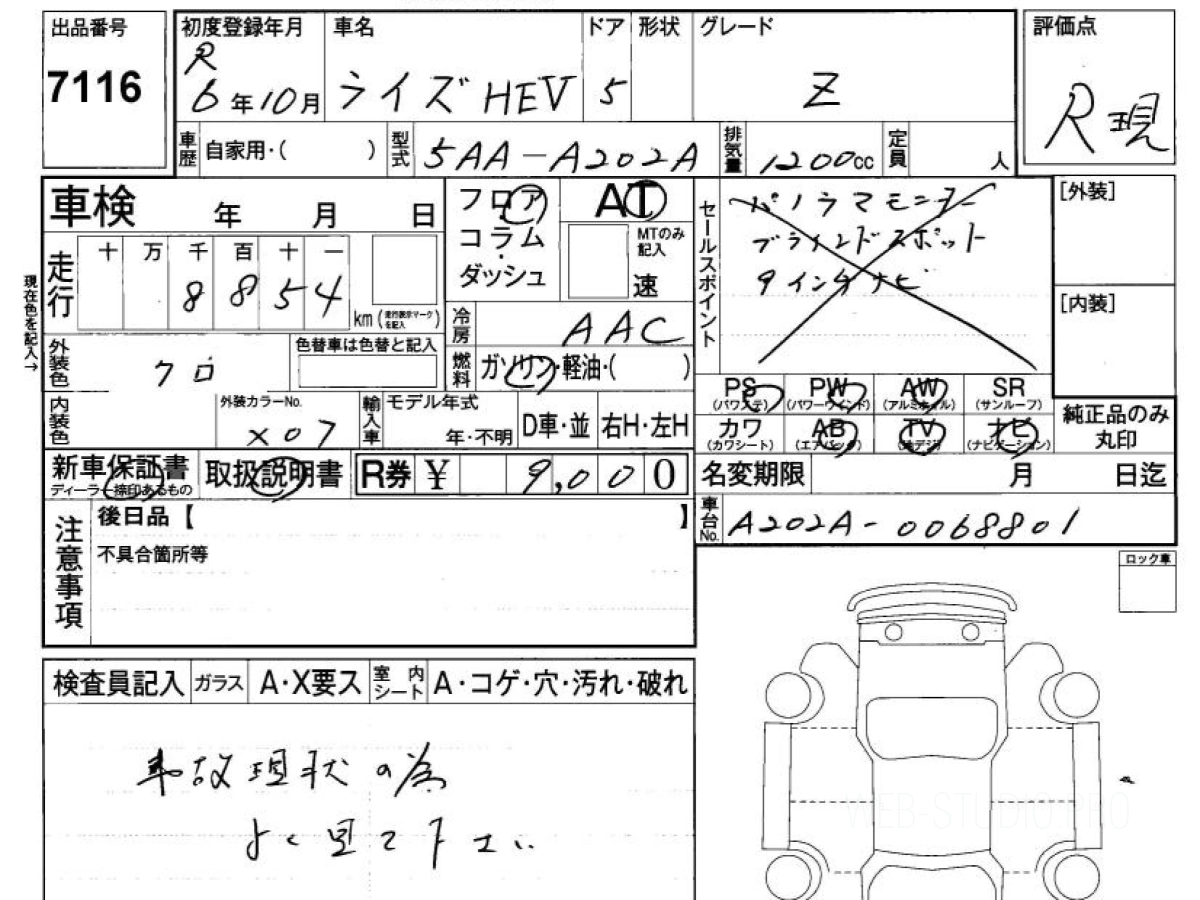 出品番号
7116
初度登録年月
R
6年10月
車名
ライズ HEV
ドア
5
形状
グレード
Z
評価点
R現
車歴
自家用・( )
型式
5AA-A202A
排気量
1200cc
定員
人
車検 年 月 日
フロア
コラム
ダッシュ
AT
MTのみ記入
速
セールスポイント
パノラマモニター
ブラインドスポット
9インチナビ
[外装]
[内装]
現在色を記入→
走行
十 万 千 百 十 一
8 8 5 4
km(走行表示マークを記入)
冷房
AAC
燃料
ガソリン・軽油・( )
外装色
クロ
色替車は色替と記入
内装色
外装カラーNo.
X07
輸入車
モデル年式
年・不明
D車・並
右H・左H
PS
(パワステ)
PW
(パワーウインド)
AW
(アルミホイル)
SR
(サンルーフ)
カワ
(カワシート)
AB
(エアバック)
TV
(地デジ)
ナビ
(ナビゲーション)
純正品のみ
丸印
新車保証書
ディーラー捺印あるもの
取扱説明書
R券 ¥ 9,000
名変期限 月 日迄
注意事項
後日品【 】
不具合箇所等
車台No.
A202A-0068801
ロック車
検査員記入
ガラス
A・X要ス
室内シート
A・コゲ・穴・汚れ・破れ
事故現状の為
よく見て下さい
A
WEB-STUDIO.PRO